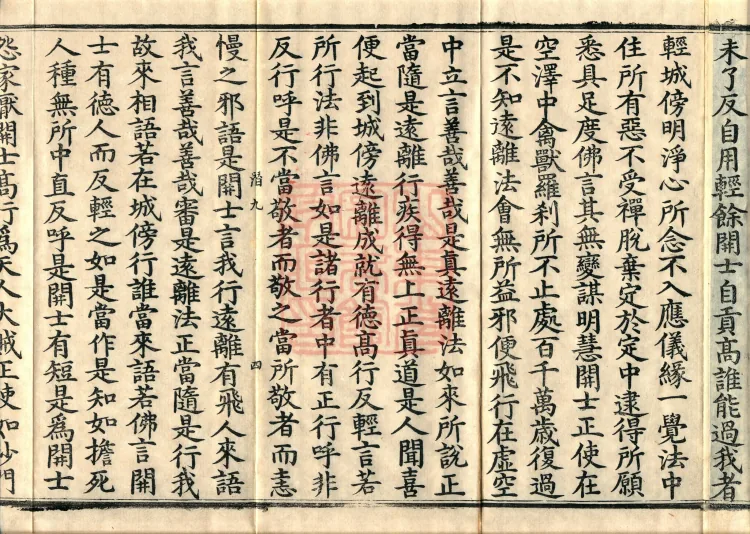 未了反自用輕餘開士自貢髙誰能過我者
輕城傍明淨心所念不入應儀緣一覺法中
住所有惡不受禪脫棄定於定中逮得所願
悉具足度佛言其無變謀明慧開士正使在
空澤中禽獸羅刹所不止處百千萬歲復過
是不知遠離法會無所益邪便飛行在虛空
中立言善哉善哉是真遠離法如來所說正
當隨是遠離行疾得無上正真道是人聞喜
便起到城傍遠離成就有德髙行反輕言若
所行法非佛言如是諸行者中有正行呼非
反行呼是不當敬者而敬之當所敬者而恚
慢之邪語是開士言我行遠離有飛人來語
我言善哉善哉審是遠離法正當隨是行我
故來相語若在城傍行誰當來語若佛言開
士有德人而反輕之如是當作是知如擔死
人種無所中直反呼是開士有短是爲開士
怨家厭開士髙行爲天人大賊正使如沙門
九
四